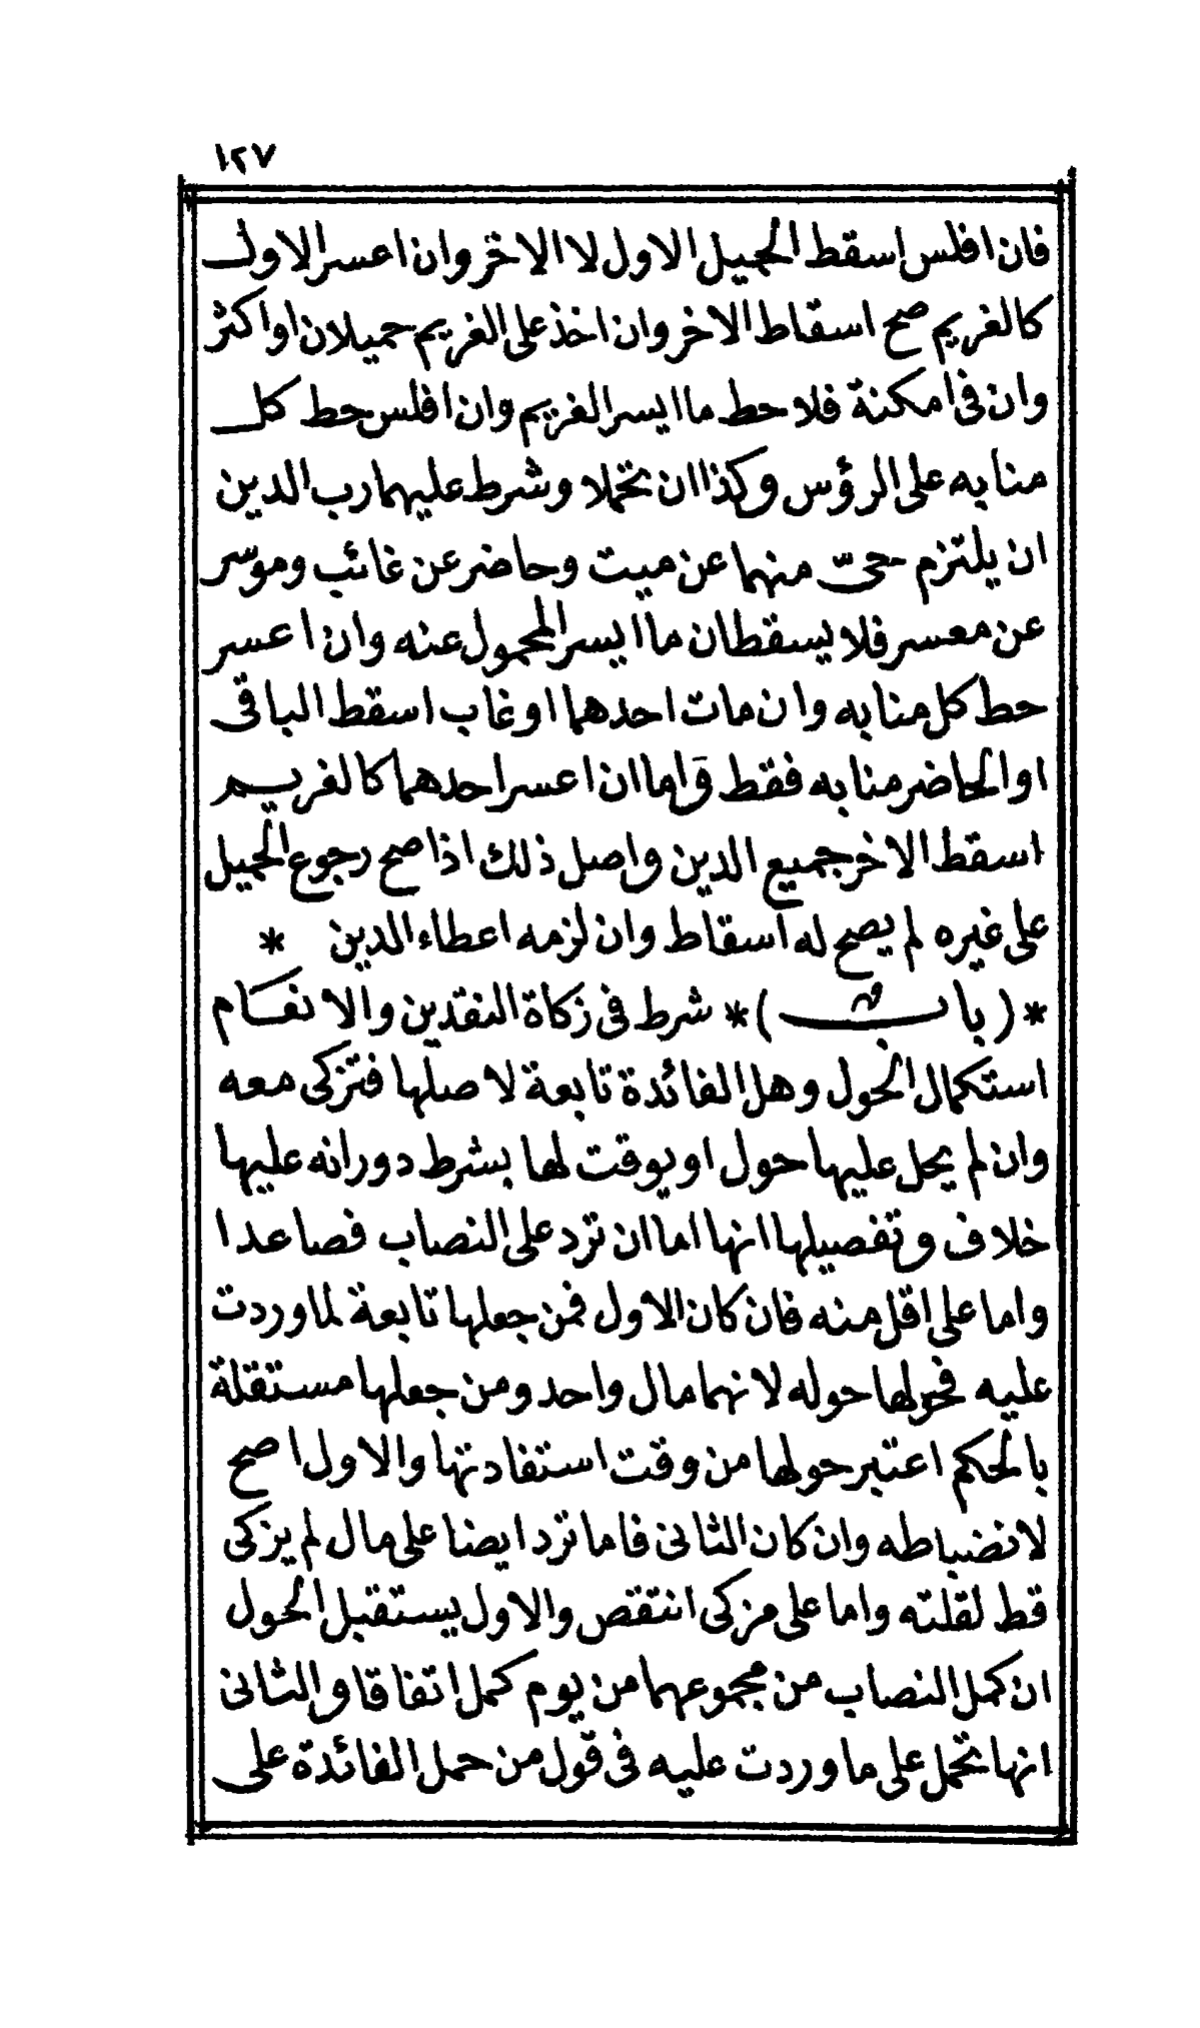 ١٢٧
فان افلس اسقط الحميل الاول لا الاخر وان اعسر الاول
كالغريم صح اسقاط الاخر وان اخذ على الغريم حميلان او اكثر
وان فى امكنة فلا حط ما ايسر الغريم وان افلس حط كل
منابه على الرؤس وكذا ان تحملا وشرط عليهما رب الدين
ان يلتزم حىّ منهما عن ميت وحاضر عن غائب وموسر
عن معسر فلا يسقطان ما ايسر المحمول عنه وان اعسر
حط كل منابه وان مات احدهما او غاب اسقط الباقى
او الحاضر منابه فقط واما ان اعسر احدهما كالغريم
اسقط الاخر جميع الدين واصل ذلك اذا صح رجوع الحميل
على غيره لم يصح له اسقاط وان لزمه اعطاء الدين *
*(باب)* شرط فى زكاة النقدين والانعام
استكمال الحول وهل الفائدة تابعة لاصلها فتزكى معه
وان لم يحل عليها حول او يوقت لها بشرط دورانه عليها
خلاف وتفصيلها انها اما ان ترد على النصاب فصاعدا
واما على اقل منه فان كان الاول فمن جعلها تابعة لما وردت
عليه فحولها حوله لانهما مال واحد ومن جعلها مستقلة
بالحكم اعتبر حولها من وقت استفادتها والاول اصح
لانضباطه وان كان الثانى فاما ترد ايضا على مال لم يزكى
قط لقلته واما على مزكى انتقص والاول يستقبل الحول
ان كمل النصاب من مجموعهما من يوم كمل اتفاقا والثانى
انها تحمل على ما وردت عليه فى قول من حمل الفائدة على